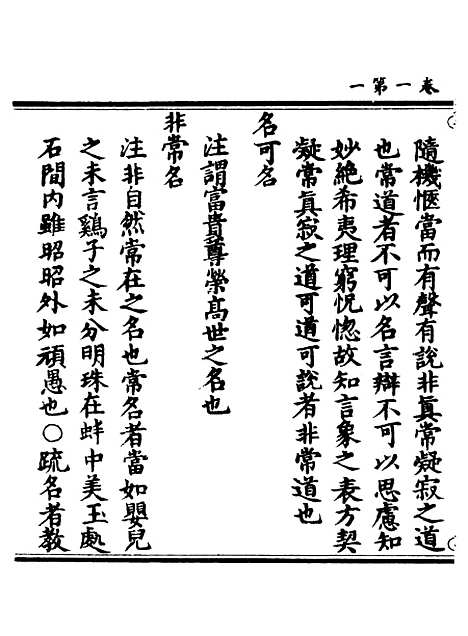 卷一第一
隨機愜當而有聲有說非眞常凝寂之道
也常道者不可以名言辯不可以思慮知
妙絶希夷理窮怳惚故知言象之表方契
凝常眞寂之道可道可說者非常道也
名可名
注謂富貴尊榮高世之名也
非常名
注非自然常在之名也常名者當如嬰兒
之未言鷄子之未分明珠在蚌中美玉處
石間内雖昭昭外如頑愚也○疏名者教